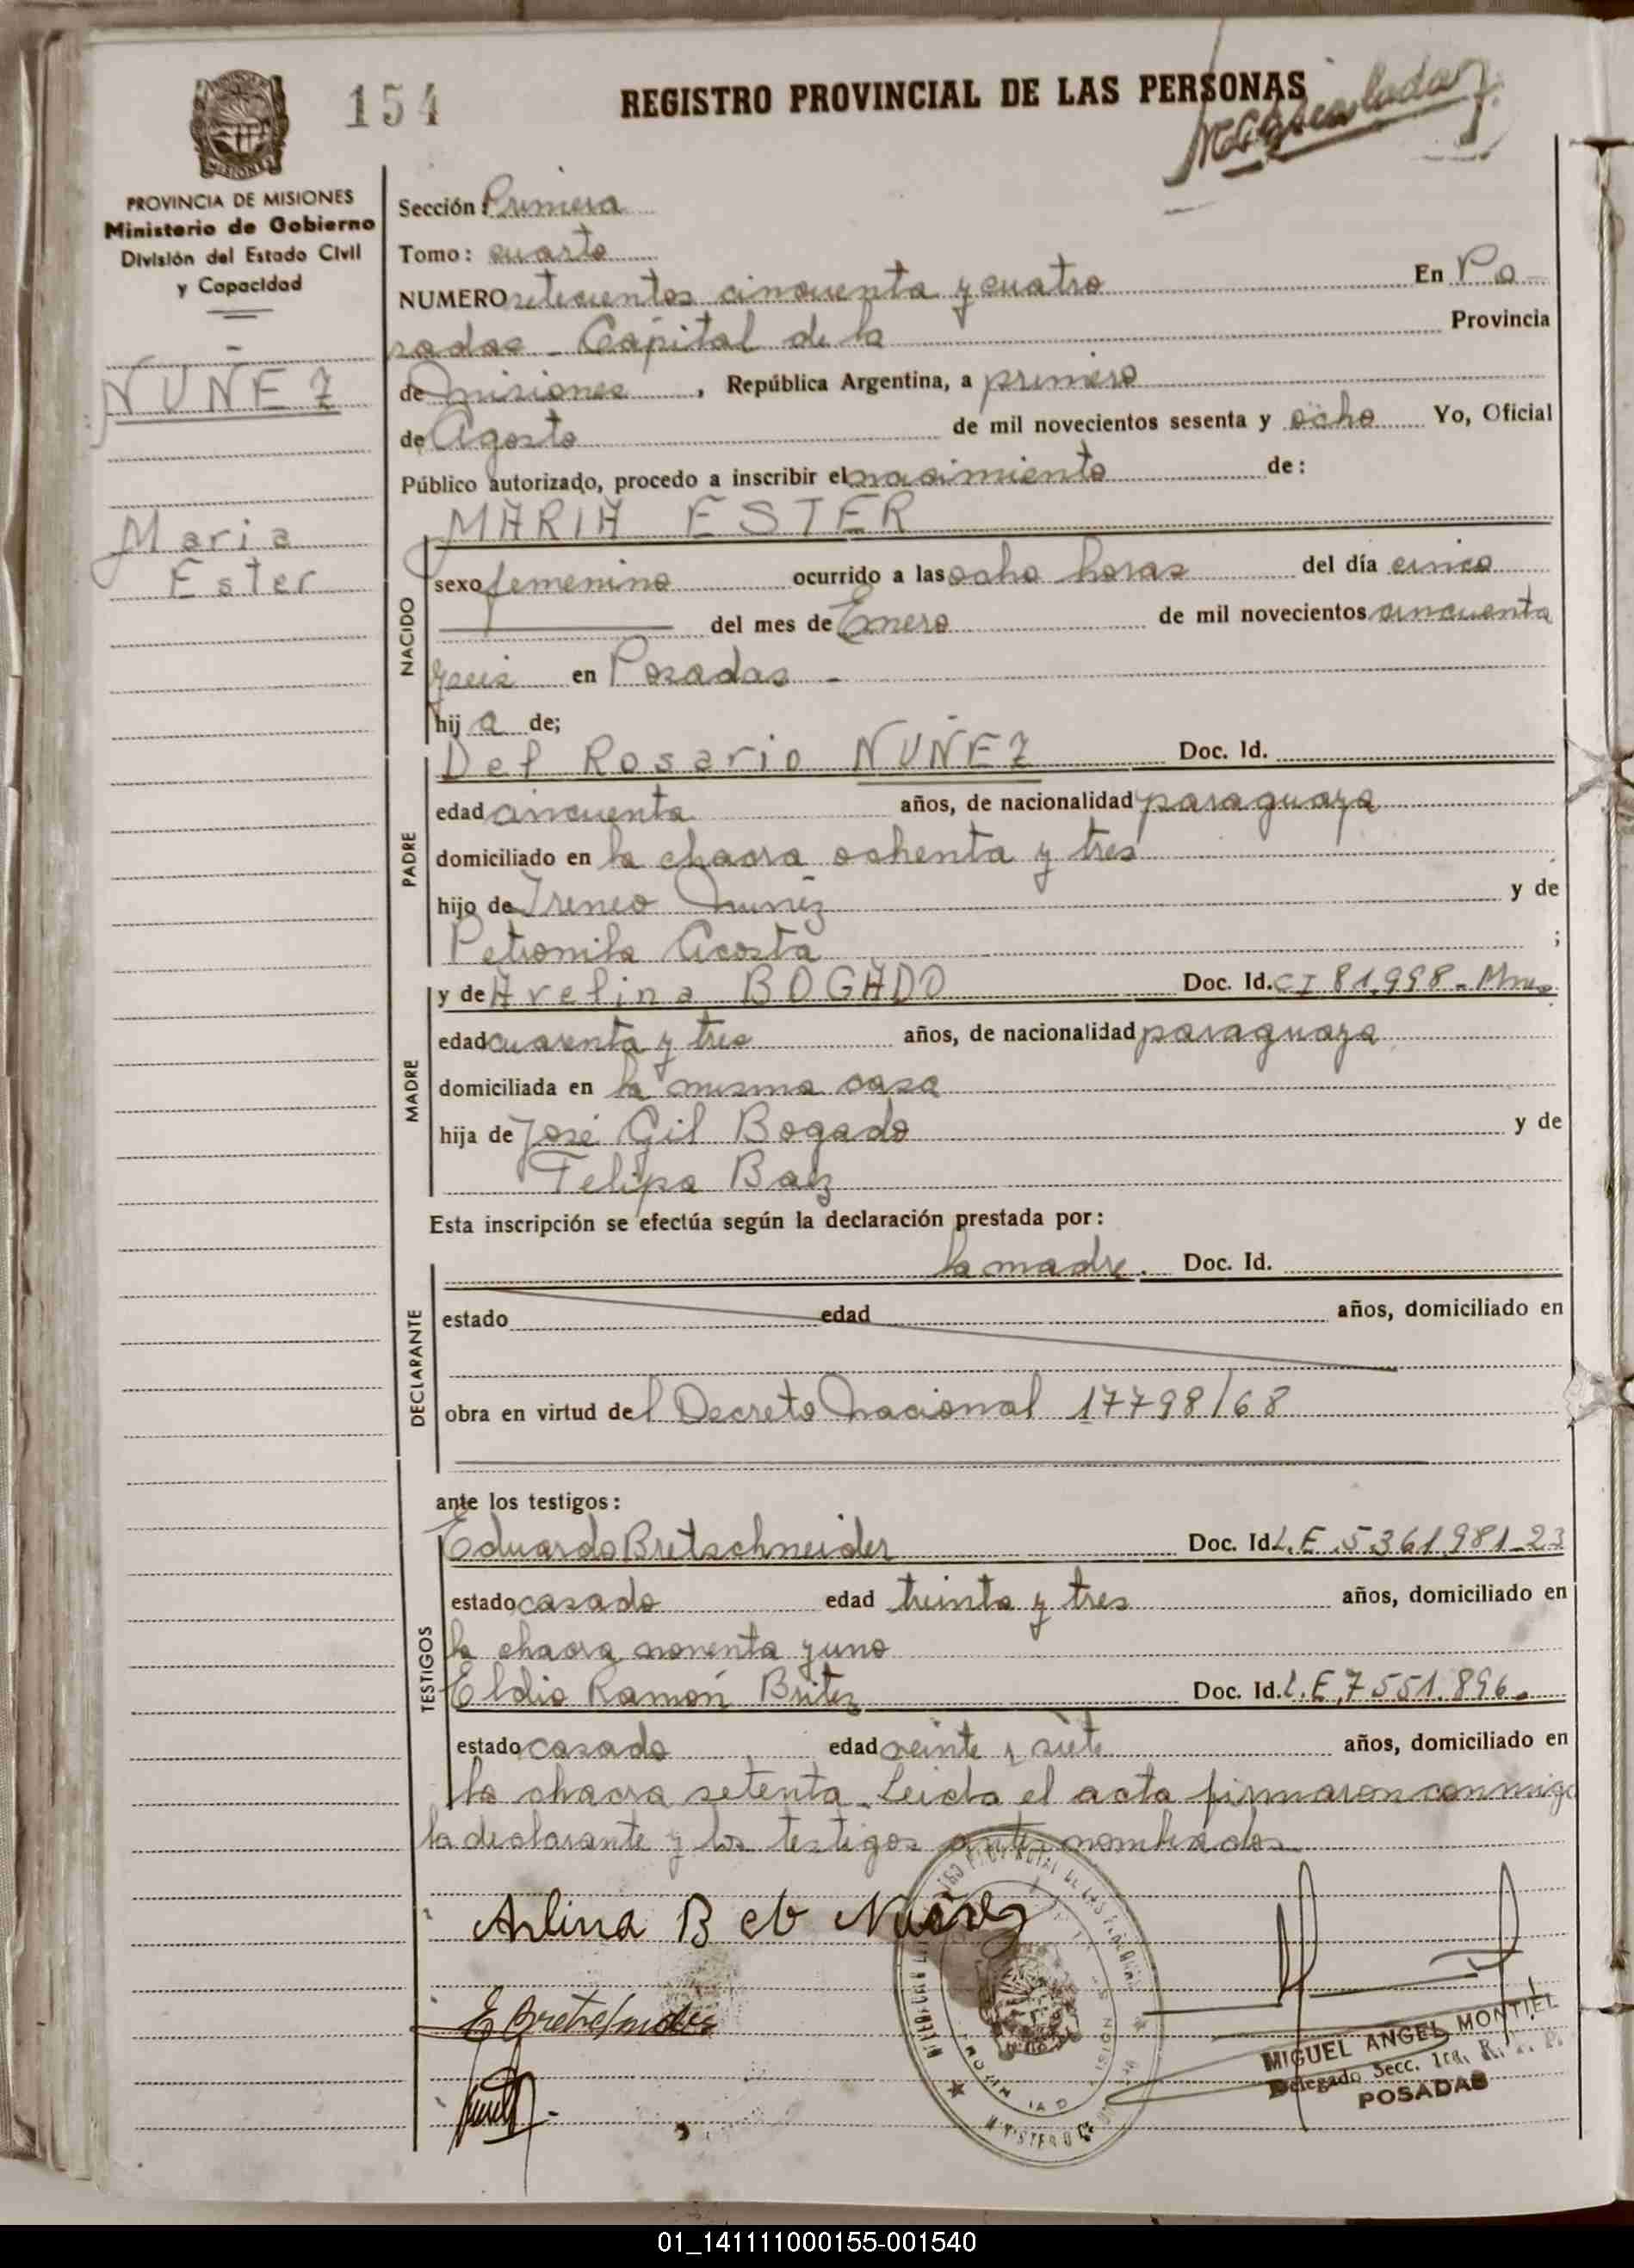 154
REGISTRO PROVINCIAL DE LAS PERSONAS
MISIONES
PROVINCIA DE MISIONES
Ministerio de Gobierno
División del Estado Civil
y Capacidad
NUÑEZ
Maria
Ester
Sección: Primera
Tomo: cuarto
NUMERO setecientos cincuenta y cuatro En Po
sadas - Capital de la Provincia
de Misiones, República Argentina, a primero
de Agosto de mil novecientos sesenta y ocho Yo, Oficial
Público autorizado, procedo a inscribir el nacimiento de:
MARIA ESTER
NACIDO
sexo femenino ocurrido a las ocho horas del día cinco
del mes de Enero de mil novecientos cincuenta
y seis en Posadas -
hij a de;
PADRE
Del Rosario NUÑEZ Doc. Id.
edad cincuenta años, de nacionalidad paraguaya
domiciliado en la chacra ochenta y tres
hijo de Ireneo Nuñez y de
Petronila Acosta ;
MADRE
y de Avelina BOGADO Doc. Id. CI 81.998 -
edad cuarenta y tres años, de nacionalidad paraguaya
domiciliada en la misma casa
hija de José Gil Bogado y de
Felipa Baez
Esta inscripción se efectúa según la declaración prestada por:
DECLARANTE
la madre. Doc. Id.
estado edad años, domiciliado en
obra en virtud del Decreto Nacional 17798/68
ante los testigos:
TESTIGOS
Eduardo Bretschneider Doc. Id. L.E. 5.361.981-23
estado casado edad treinta y tres años, domiciliado en
la chacra noventa y uno
Eldio Ramón Britez Doc. Id. L.E. 7.551.896.
estado casado edad veinte y siete años, domiciliado en
la chacra setenta. Leida el acta firmaron conmigo
la declarante y los testigos antes nombrados
Arlina B de Nuñez
MIGUEL ANGEL MONTIEL
Delegado Secc. 1ra. R. P. P.
POSADAS
01_141111000155-001540